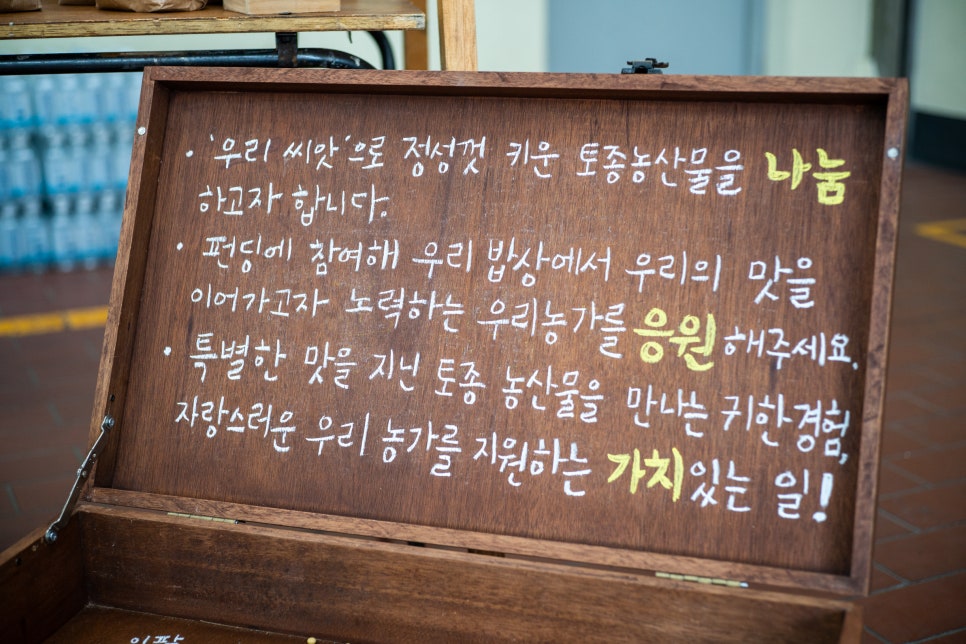 · '우리 씨앗'으로 정성껏 키운 토종농산물을 나눔
하고자 합니다.
· 펀딩에 참여해 우리 밥상에서 우리의 맛을
이어가고자 노력하는 우리농가를 응원해주세요.
· 특별한 맛을 지닌 토종 농산물을 만나는 귀한경험,
자랑스러운 우리 농가를 지원하는 가치있는 일!